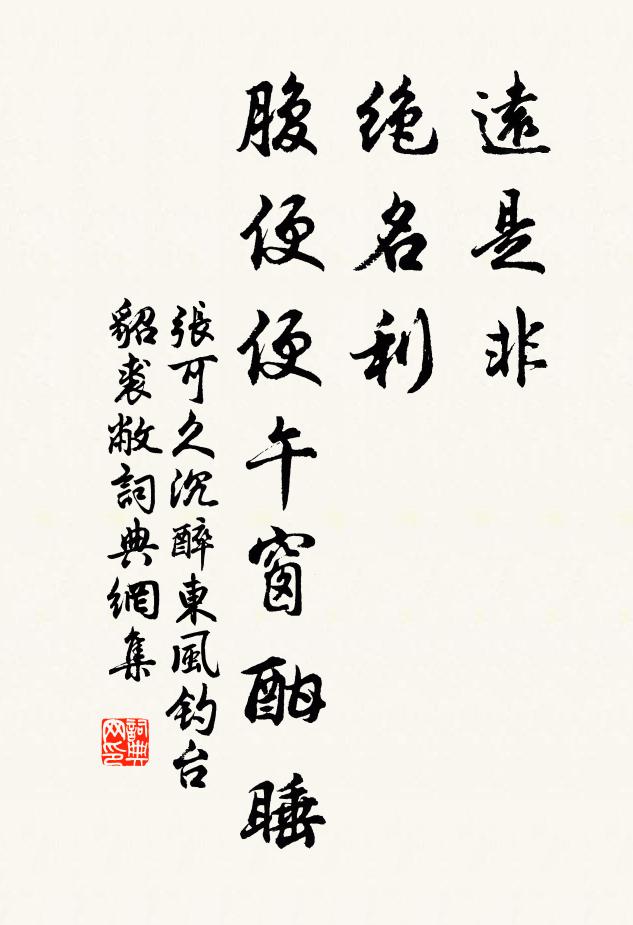 遠是非
絶名利
腹便便午窗酣睡
張可久沉醉東風钓台
貂裘敝詞典網集
詞典网印